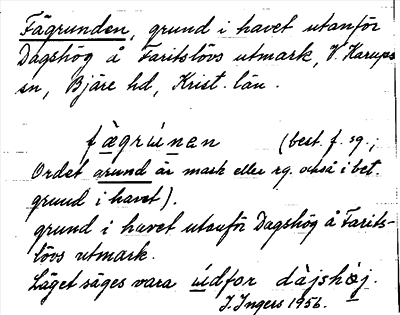 Fägrunden, grund i havet utanför
Dagshög å Faritslövs utmark, V. Karups
sn, Bjäre hd, Krist. län.
fàgrúnen (best. f. sg.;
Ordet grund är mask eller rg. också i bet.
grund i havet).
grund i havet utanför Dagshög å Farits-
lövs utmark.
Läget säges vara úidfor dàjshøj.
I. Ingers 1956.